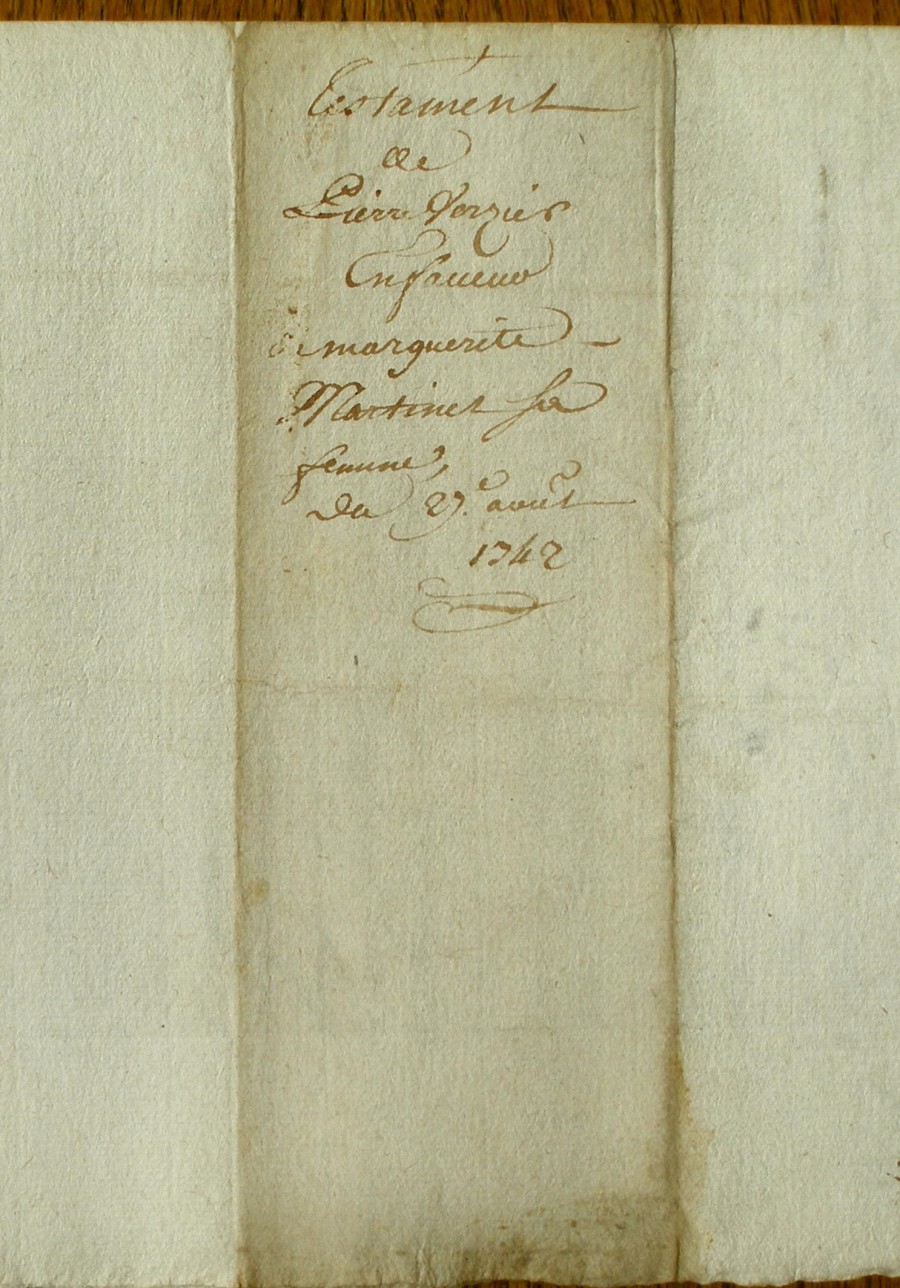 Testament
de
Pierre Verzier
En faveur
de marguerite
Martinet sa
femme,
Du 27.e aoust
1742